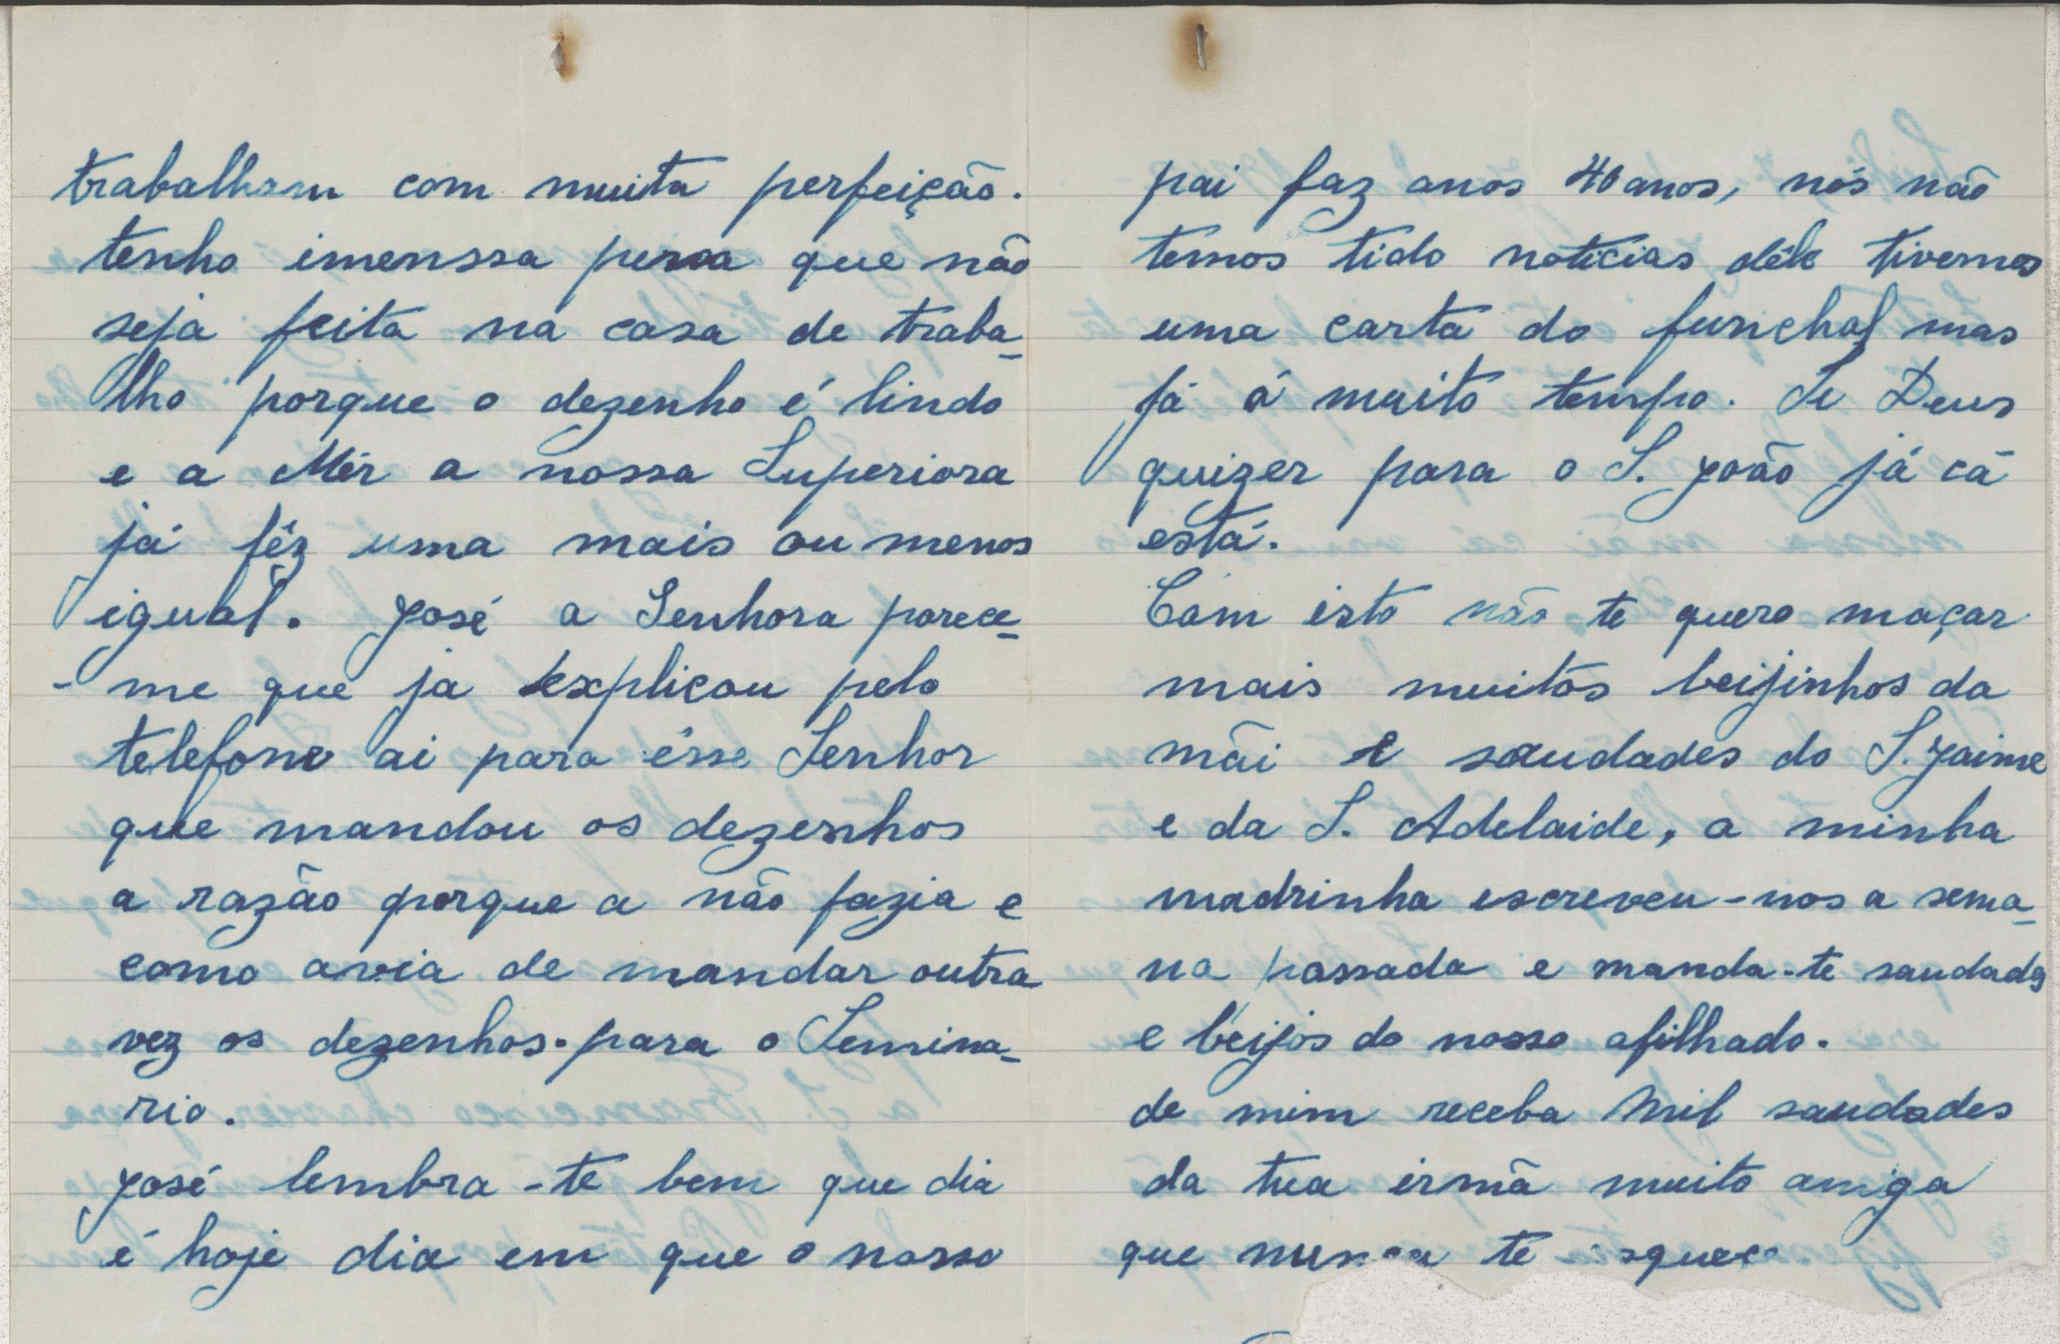 trabalham com muita perfeição.
tenho imenssa pena que não
seja feita na casa de traba-
lho porque o dezenho é lindo
e a Mér a nossa Superiora
já fêz uma mais ou menos
igual. José a Senhora parece-
-me que ja explicou pelo
telefone ai para êsse Senhor
que mandou os dezenhos
a razão porque a não fazia e
como avia de mandar outra
vez os dezenhos. para o Semina-
rio.
José lembra-te bem que dia
é hoje dia em que o nosso
pai faz anos 40 anos, nós não
temos tido noticias dêle tivemos
uma carta do funchal mas
já á muito tempo. Se Deus
quizer para o S. João já cá
está.
Com isto não te quero maçar
mais muitos beijinhos da
mãi e saudades do S. Jaime
e da S. Adelaide, a minha
madrinha escreveu-nos a sema-
na passada e manda-te saudades
e beijos do nosso afilhado.
de mim receba mil saudades
da tua irmã muito amiga
que nunca te